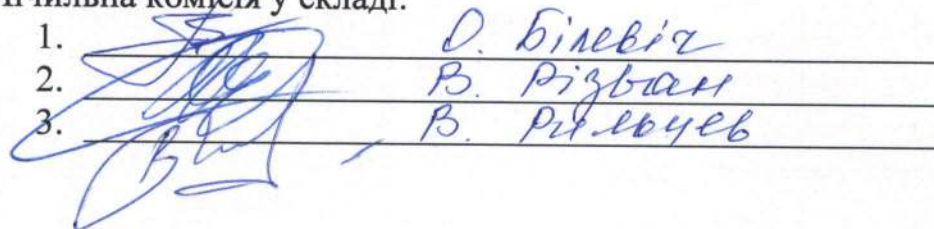 чильна комісія у складі:
1. О. Білевіч
2. В. Різван
3. В. Рильцев